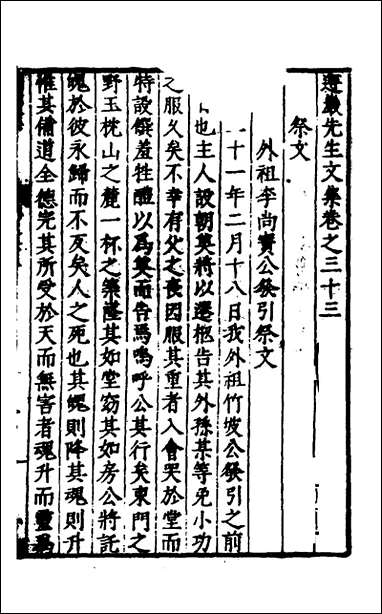 遵巖先生文集卷之三十三
祭文
外祖李尚賓公發引祭文
十一年二月十八日我外祖竹坡公發引之前
也主人設朝奠將以遷柩告其外孫某等免小功
之服久矣不幸有父之喪因服其重者入會哭於堂而
特設饌羞牲醴以為奠而告焉嗚呼公其行矣東門之
野玉枕山之麓一杯之築隆其如堂窈其如房公將託
魄於彼永歸而不反矣人之死也其魄則降其魂則升
惟其備道全德完其所受於天而無害者魂升而靈焉